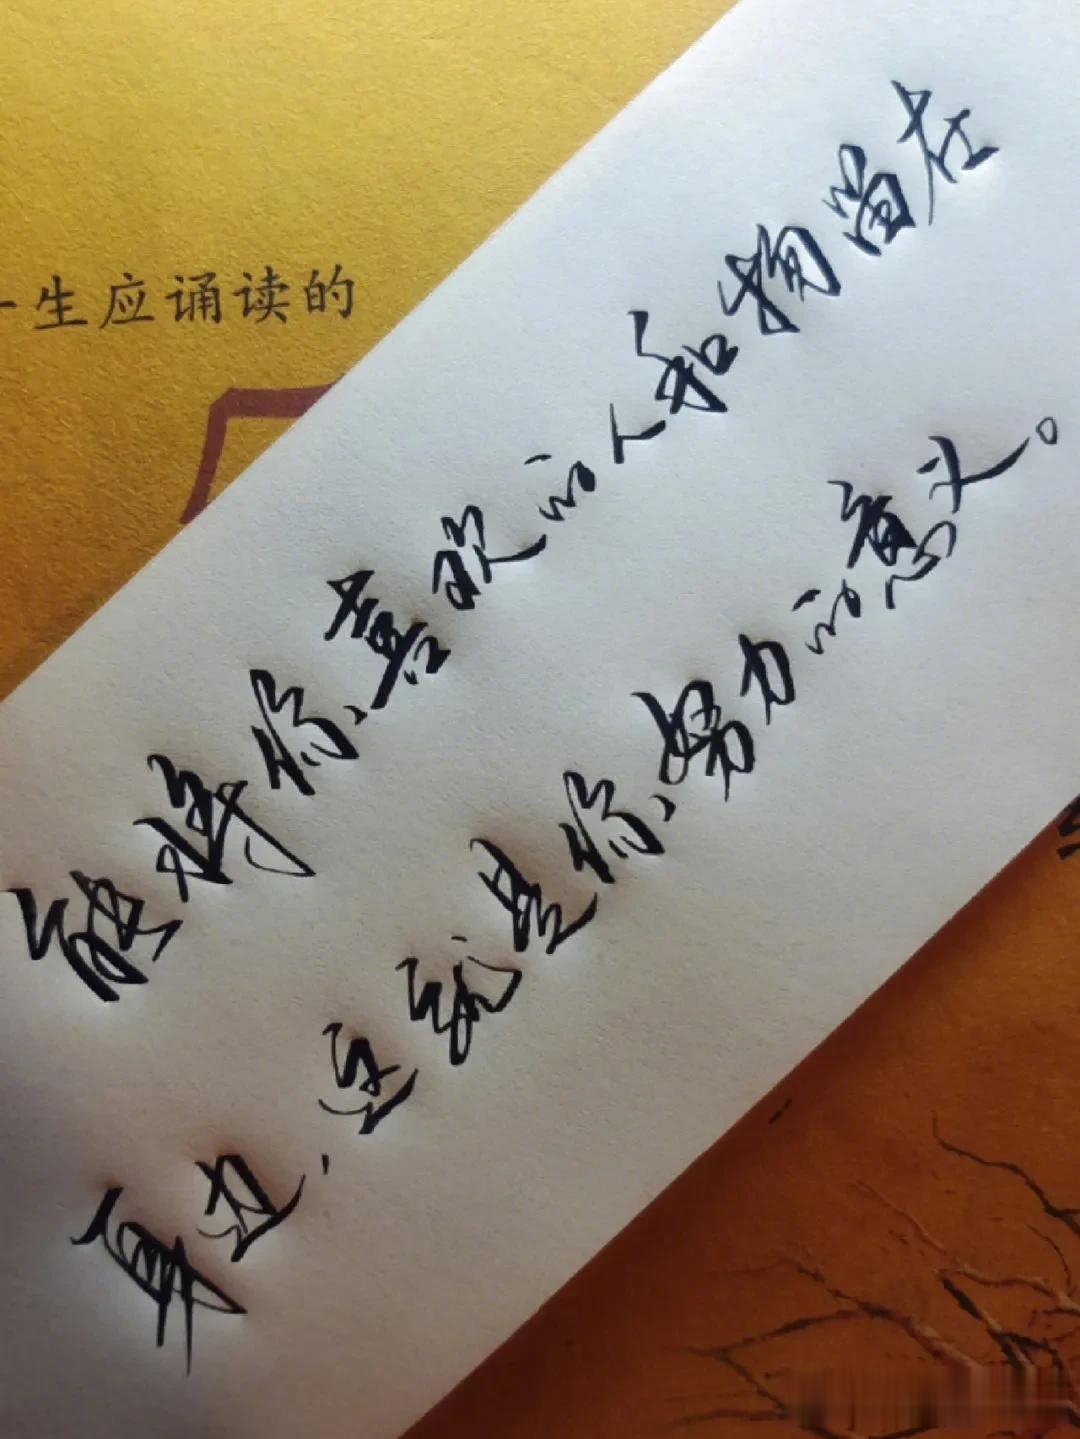 一生应诵读的
能将你喜欢的人和物留在
身边，这就是你努力的意义。